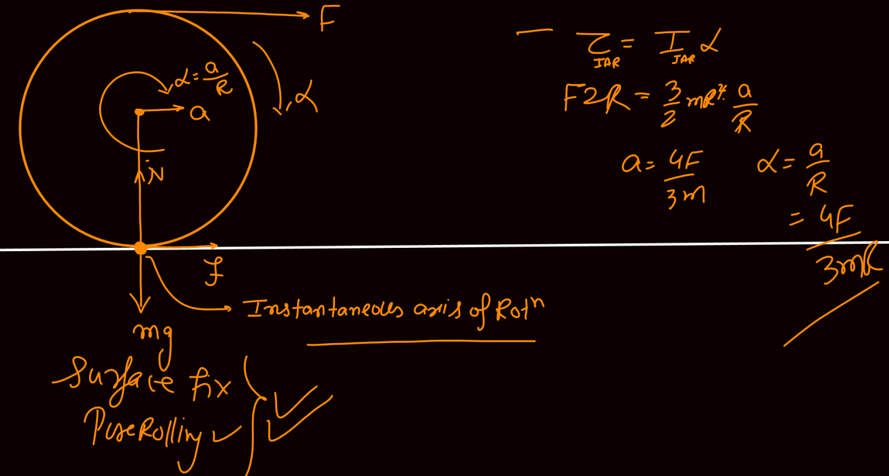 F
α = a/R
α
a
N
f
mg
Instantaneous axis of Rotⁿ
Surface fix
Pure Rolling ✓
τ_IAR = I_IAR α
F2R = 3/2 mR² · a/R
a = 4F/3m
α = a/R
= 4F/3mR